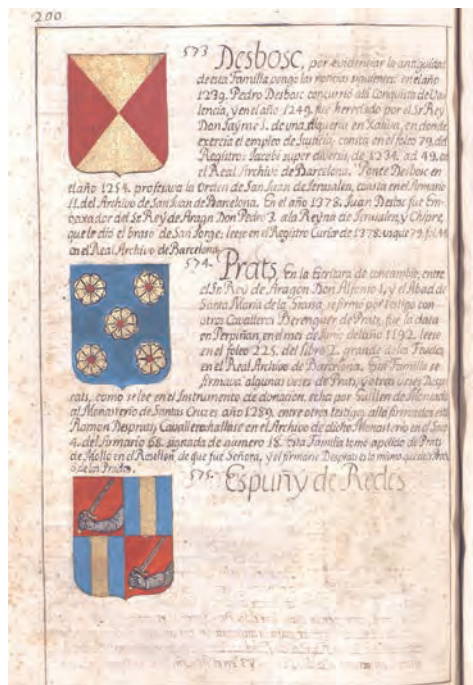 200
573 Desbosc, por evidenciar la antiguedad
de esta Familia, pongo las noticias siguientes: en el año
1239. Pedro Desbosc concurrió ála Conquista de Va-
lencia, y en el año 1249. fue heredado por el Sr Rey
Don Jayme I. de una Alqueria en Xativa, en donde
exercia el empleo de Justicia; consta en el foleo 79. del
Registro: Jacobi super diversis, de 1234. ad 49. en
el Real Archivo de Barcelona. Ponce Desbosc en
el año 1254. professava la Orden de San Juan de Jerusalen, consta en el Armario
11. del Archivo de San Juan de Barcelona. En el año 1378. Juan Desbosc fue Em-
baxador del Sr Rey de Aragn Don Pedro 3. ala Reyna de Jerusalen, y Chipre,
que le dió el braso de San Jorge; leese en el Registro Curiæ de 1378. usque 79. fol. 44
en el Real Archivo de Barcelona.
574. Prats, En la Escritura de concambio, entre
el Sr Rey de Aragon Don Alfonso I, y el Abad de
Santa Maria de la Grassa, se firmó por testigo con
otros Cavalleros Berenguer de Prats, fue la data
en Perpiñan, en el mes de Junio del año 1192. leese
en el foleo 225. del libro 2. grande delos Feudos,
en el Real Archivo de Barcelona. Esta Familia se
firmava algunas veses de Prats, y otras veses Desp-
rats, como se lee en el Instrumento de donacion, echa por Guillen de Moncada
al Monasterio de Santas Cruzes, año 1289. entre otros testigos alla firmados está
Ramon Desprats Cavallero hallase en el Archivo de dicho Monasterio en el Saco
4. del Armario 68. signada de numero 18. Esta Familia tomo apellido de Prats
de Mollo en el Rosellón, de que fue Señora, y el firmarse Desprats es lo mismo que de Prats,
ó de los Prados.
575. Espuñy de Redes